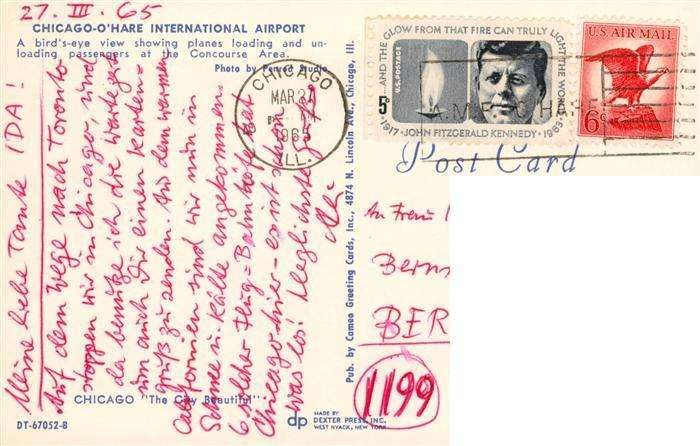 27. III. 65
CHICAGO-O'HARE INTERNATIONAL AIRPORT
A bird's-eye view showing planes loading and un-
loading passengers at the Concourse Area.
Photo by Penrod Studio
Meine liebe Tante IDA!
Auf dem Wege nach Toronto
stoppen wir in Chicago, und
da benütze ich die wenigen
um auch Dir einen Karten-
gruß zu senden. Aus dem warmen
Californien sind wir nun in
Schnee u. Kälte angekommen.
6 solcher Flug=Bahnhöfe hat
Chicago hier - es ist schon
was los! Herzlichste Grüße
CHICAGO "The City Beautiful"
DT-67052-B
MADE BY
dp DEXTER PRESS, INC.
WEST NYACK, NEW YORK
Pub. by Cameo Greeting Cards, Inc., 4874 N. Lincoln Ave., Chicago, Ill.
CHICAGO
MAR 27
1965
ILL.
AND THE GLOW FROM THAT FIRE CAN TRULY LIGHT THE WORLD
U.S. POSTAGE
5c
1917 · JOHN FITZGERALD KENNEDY · 1963
U.S. AIR MAIL
6c
Post Card
An Frau
Bern
BER
1199